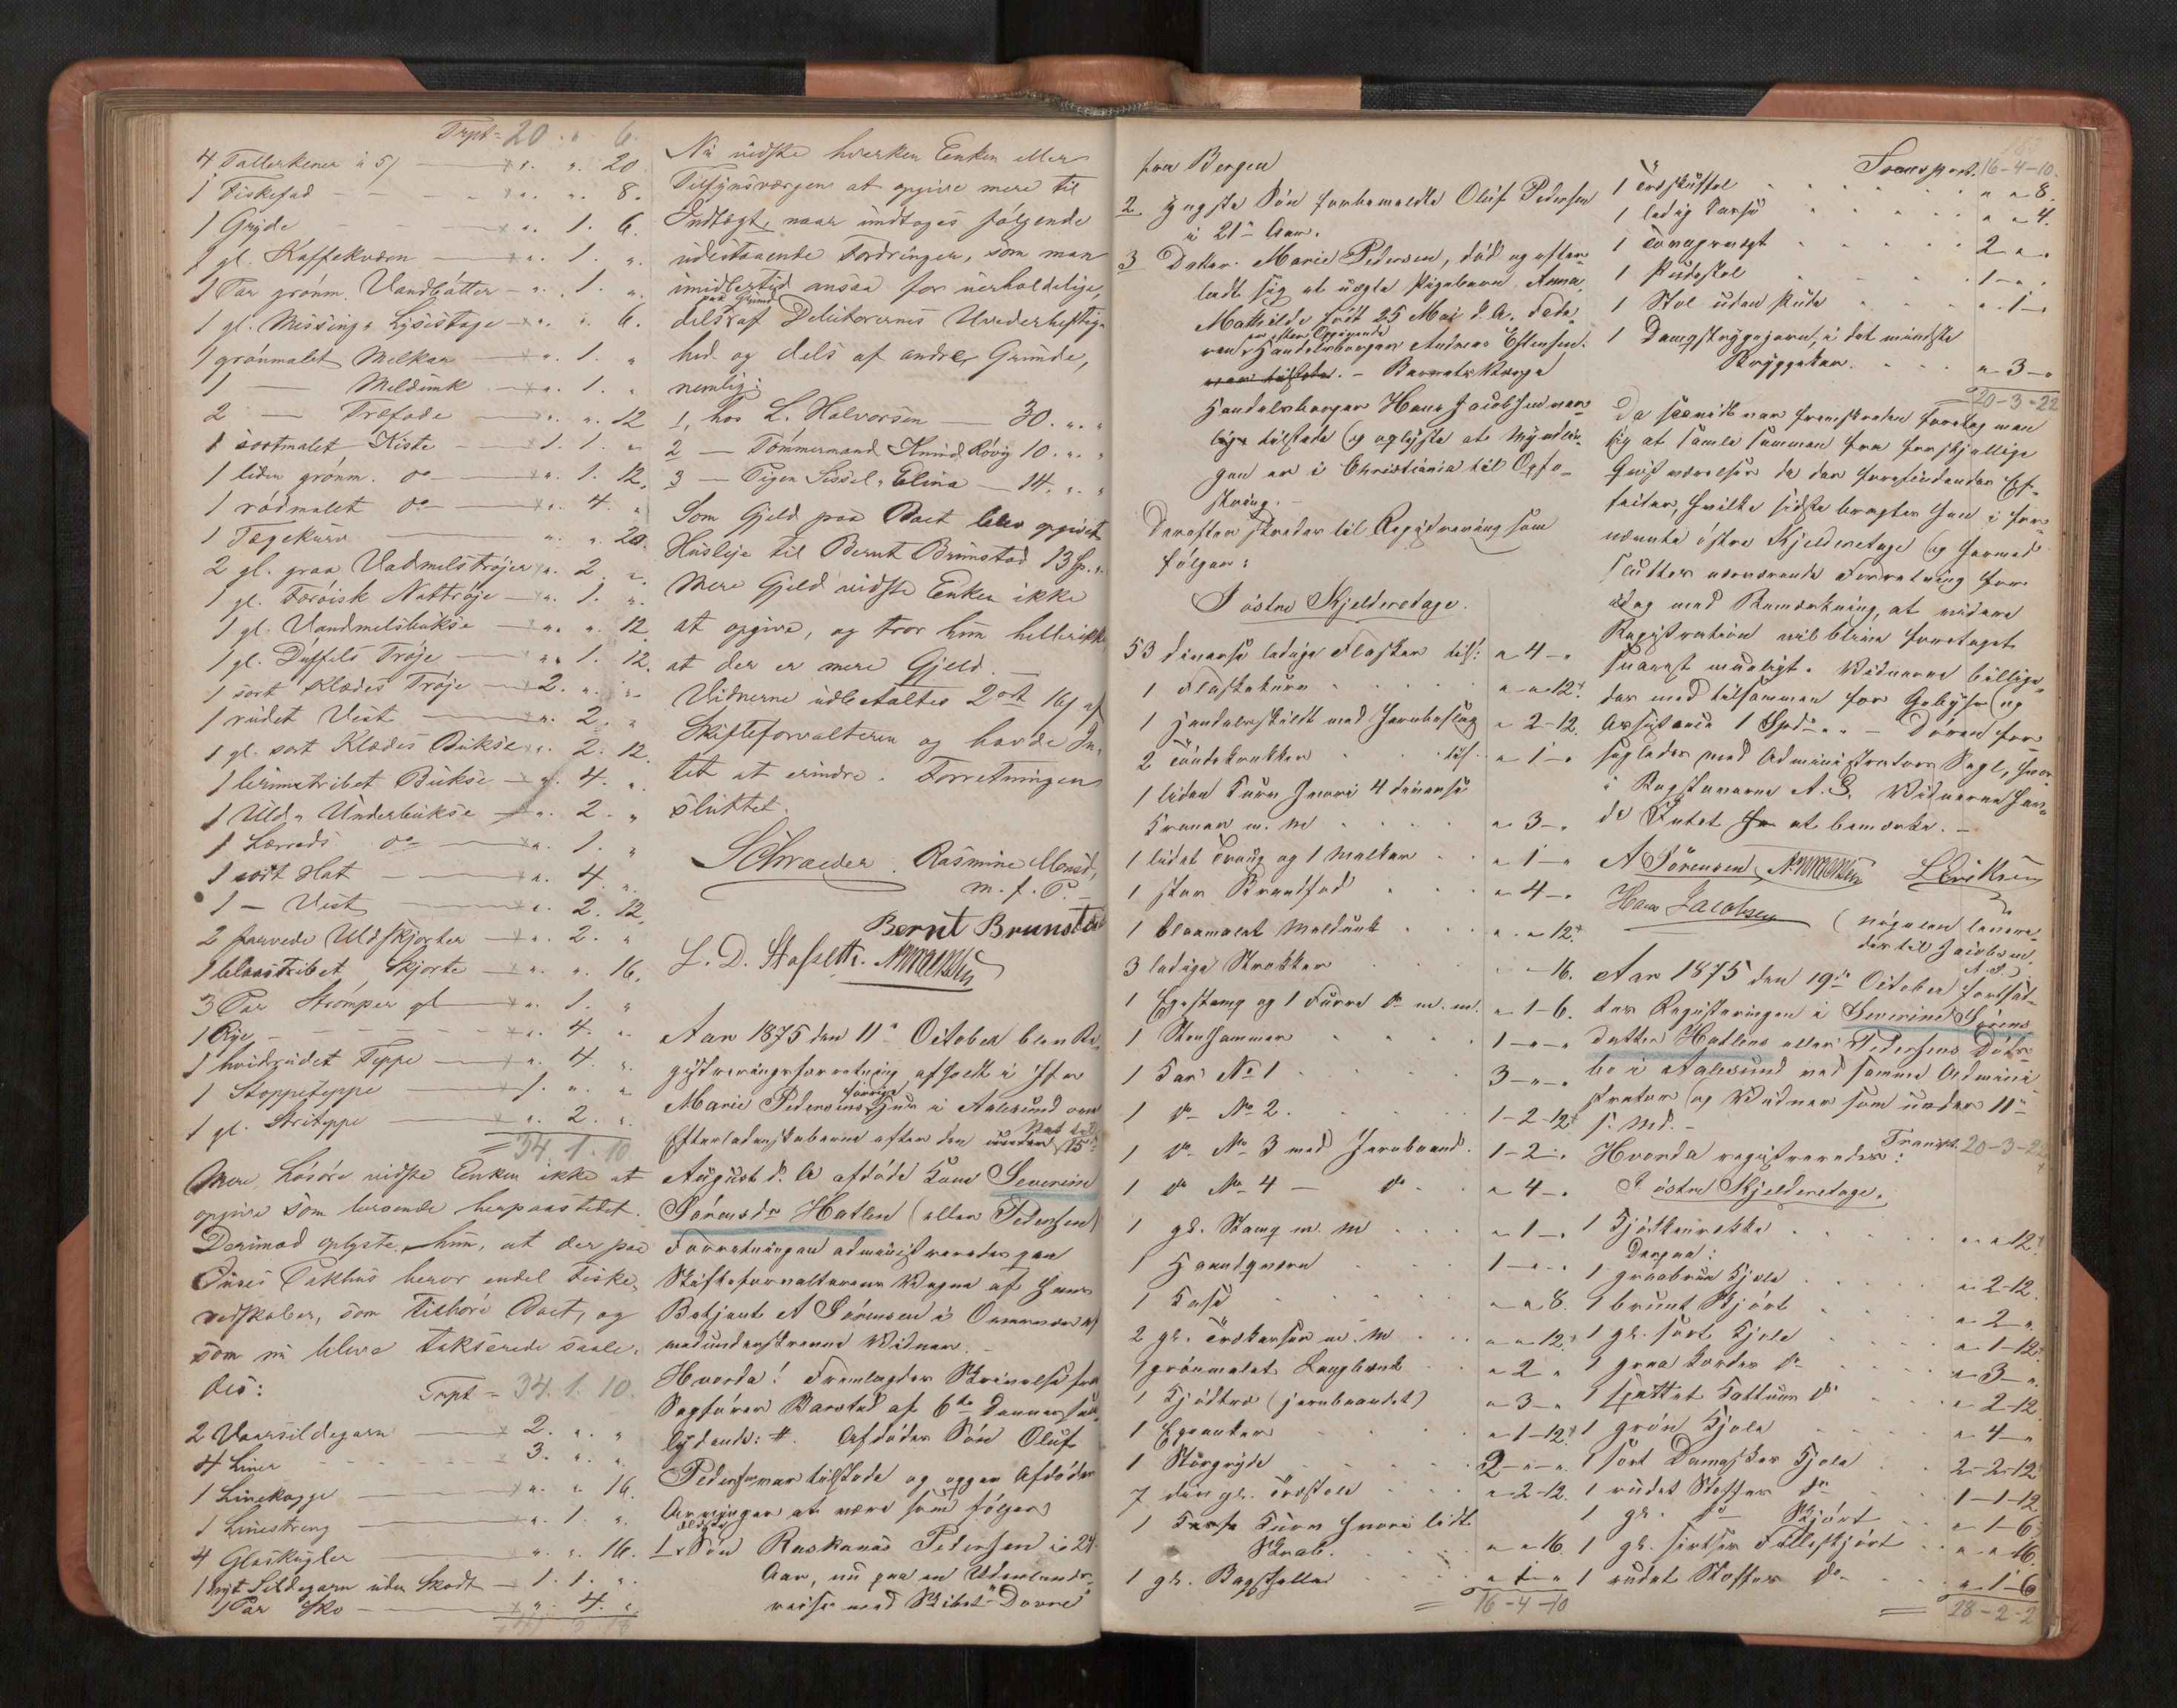 Trpt = 20. " 6.
4 Tallerkener à 5/ — ". ". 20
1 Fiskefad — ". ". 8.
1 Gryde — ". 1. 6.
1 gl. Kaffekværn — ". 1. "
1 Par grønm. Vandbøtter — ". 1. "
1 gl. Messing Lysestage — ". ". 6.
1 grønmalet Melkar — ". 1. "
1 — Meldunk — ". 1. "
2 — Træfade — ". ". 12
1 sortmalet Kiste — 1. 1. "
1 liden grønm. do — ". 1. 12.
1 rødmalet do — ". 4. "
1 Tægekurv — ". ". 20.
2 gl. graa Vadmelstrøjer ". 2. "
1 gl. Færöisk Nattrøje — ". 1. "
1 gl. Vandmelsbukse — ". ". 12.
1 gl. Duffels Trøje — ". 1. 12.
1 sort Klædes Trøje — 2. ". "
1 rudet Vest — ". 2. "
1 gl. sort Klædes Bukse ". 2. 12.
1 brunstribet Bukse — ". 4. "
1 Uld Underbukse — ". 2. "
1 Lærreds do — ". 1. "
1 sort Hat — ". 4. "
1 — Vest — ". 2. 12.
2 farvede Uldskjorter — ". 2. "
1 blaastribet Skjorte — ". ". 16.
3 Par Strømper gl — ". 1. "
1 Rye — ". 4. "
1 hvidrudet Teppe — ". 4. "
1 Stoppeteppe — 1. ". "
1 gl. Striteppe — ". 2. "
= 34. 1. 10
Mere Løsøre vidste Enken ikke at
opgive som beroende herpaastedet.
Derimod oplyste hun, at der paa
Pakhus beror endel Fiske-
redskaber, som tilhøre Boet, og
som nu bleve takserede saale-
des: Trpt = 34. 1. 10.
2 Vaarsildegarn — 2. ". "
4 Liner — 3. ". "
1 Linekagge — ". ". 16.
1 Linestreng — ". 1. "
4 Glaskugler — ". ". 16.
1 nyt Sildegarn uden Skodt — 1. 1. "
1 Par Sko — ". 4. "
Nu vidste hverken Enken eller
Tilsynsværgen at opgive mere til
Indtægt, naar undtages følgende
udestaaende Fordringer, som man
imidlertid ansaa for uerholdelige,
dels paa Grund af Debitorernes Uvederheftig-
hed og dels af andre Grunde,
nemlig:
1, hos L. Halvorsen — 30. ". "
2 — Tømmermand Knud Røvig 10. ". "
3 — Pigen Sissel Elina — 14. ". "
Som Gjeld paa Boet blev opgivet
Husleje til Bernt Brunstad 13 Sp. "
Mere Gjeld vidste Enken ikke
at opgive, og tror hun heller ikke
at der er mere Gjeld. —
Vidnerne udbetaltes 2 ort 16/ af
Skifteforvalteren og havde In-
tet at erindre. Forretningen
sluttet.
Schraeder. Rasmine Monsd.
m. f. P.
Bernt Brunstad
L. D. Stafseth.
Aar 1875 den 11te October blev Re-
gistreringsforretning afholdt i
Marie Pedersens Huus i Aalesund over
Efterladenskaberne efter den Nat til 15de
August d. A afdøde Kone Severine
Sørensdr Hatlen (eller Pedersen)
Forretningen administreredes paa
Skifteforvalterens Vegne af hans
Betjent A Sørensen i Overvær af
medunderskrevne Vidner. —
Hvorda! Fremlagdes Skrivelse fra
Sagfører Barstad af 6te dennes saa-
lydende: #. Afdødes Søn Oluf
Pedersen var tilstede og opgav Afdødes
Arvinger at være som følger:
1 ældste Søn Raskanus Pedersen i 24
Aar, nu paa en Udenlands-
reise med Skibet "Dovre"
fra Bergen
2 yngste Søn forbemeldte Oluf Pedersen
i 21de Aar.
3 Datter Marie Pedersen, død og efter-
ladt sig et uægte Pigebarn Anna
Mathilde født 25 Mai d. A. Fade-
ren er efter Opgivende Handelsborger Andreas Estensen.
— Barnets Værge
Handelsborger Hans Jacobsen var
tilstede og oplyste at Myndlin-
gen er i Christiania til Opfo-
string. —
Derefter skredes til Registrering som
følger:
I østre Kjelderetage.
53 diverse ledige Flasker tils: " 4 — "
1 Flaskekurv . . " — " 12.
1 Handelsskildt med Jernbeslag " 2 — 12.
2 Tøndekrakker . tils. " 1 — "
1 liden Kurv hvori 4 diverse
Kraner m. M . . " 3 — "
1 lidet Traug og 1 Melkar . " 1 — "
1 stor Brændfad . . " 4 — "
1 blaamalet Meldunk . . " — " 12.
3 ledige Krakker . . — 16.
1 Egestamp og 1 Furre do m. m. " 1 — 6.
1 Steenhammer . . 1 — " — "
1 Kar No 1 . . 3 — " — "
1 do No 2. . . 1 — 2 — 12
1 do No 3 med Jernbaand. 1 — 2 — "
1 do No 4 — do . " 4 — "
1 gl. Stamp m. M . . " 1 — "
1 Haandqværn . . 1 — " — "
1 Kasse . . " — " 8.
2 gl. Trækasser m. M . . " — " 12
1 grønmalet Langbænk . . " 2 "
1 Kjødtræ (jernbaandet) " 3 — "
1 Egeanker . . " 1 — 12
1 Störgryde . . 2 — " — "
7 din gl. Træstole . . " 2 — 12.
1 Kurv hvori lidt
Skrab. . . " — " 16.
1 gl. Bagsthelle . . " 1 — "
= 16 — 4 — 10
Transport. 16 — 4 — 10.
1 Træskuffel . . " " 8.
1 ledig Karse . . " " 4.
1 Tørvegrægt . . 2 — "
1 Pudestol . . 1 — "
1 Stol uden Pude . " 1 — "
1 Dampstrygejern, i det mindste
Bryggekar. . . " 3 — "
20 — 3 — 22
Da saavidt var fremskreden foretog man
sig at samle sammen fra forskjellige
Qvistværelser da der forefindendes Ef-
fecter, hvilke sidste bragtes hen i for-
nævnte østre Kjelderetage og hermed
sluttes nærværende Forretning for
idag med Bemærkning, at videre
Registration vil blive foretaget
snarest muligt. Vidnerne billige-
des med tilsammen for Gebyr og
Assistance 1 Spd " " — Døren for-
segledes med Administrators Segl, hvor-
i Bogstaverne A. S. Vidnerne hav-
de Intet at bemærke. —
A Sørensen L Eriksen
Hans Jacobsen (nøgelen levere-
des til Jacobsen.
A. S.)
Aar 1875 den 19de October fortsat-
tes Registreringen i Severine Sørens-
datter Hatlens eller Pedersens Døds-
bo i Aalesund ved samme Admini-
strator og Vidner som under 11te
s. Md. —
Hvorda registreredes: Transpt. 20 — 3 — 22
I østre Kjelderetage.
1 Kjødtønrekke . . " — " 12
Derpaa:
1 graabrun Kjole . . " 2 — 12
1 brunt Skjørt . . " 2 — "
1 gl. sort Kjole . . " 1 — 12
1 graa Kordes do . . " 3 — "
1 sjattet Kattuns do . . " 2 — 12
1 grøn Kjole . . " 4 — "
1 sort Damaskes Kjole . . 2 — 2 — 12
1 rudet Stoffes do . . 1 — 1 — 12
1 gl. do Skjört . . " 1 — 6
1 gl. sirtses Felleskjört . . " — " 16.
1 rudet Stoffes do . . " 1 — 6
= 28 — 2 — 2